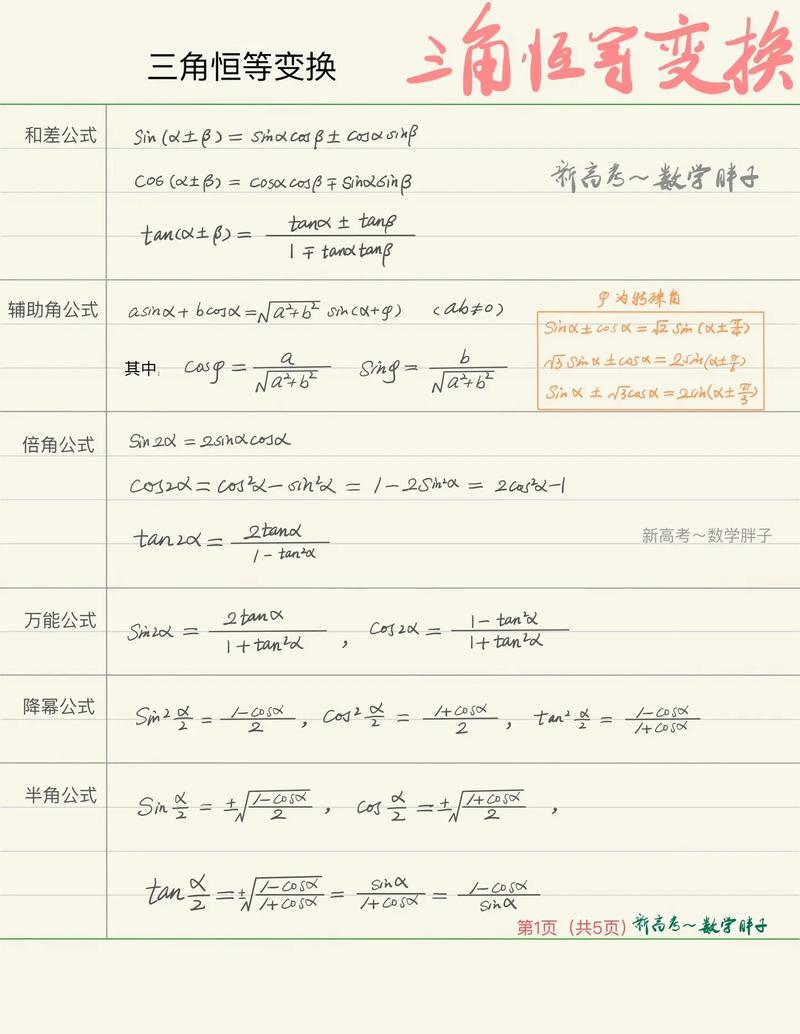 三角恒等变换
三角恒等变换
和差公式
sin(α±β)=sinαcosβ±cosαsinβ
cos(α±β)=cosαcosβ∓sinαsinβ
新高考~数学胖子
tan(α±β)=(tanα±tanβ)/(1∓tanαtanβ)
辅助角公式
asinα+bcosα=√(a²+b²) sin(α+φ) (ab≠0)
其中: cosφ=a/√(a²+b²) sinφ=b/√(a²+b²)
φ为特殊角
sinα±cosα=√2sin(α±π/4)
√3sinα±cosα=2sin(α±π/6)
sinα±√3cosα=2sin(α±π/3)
倍角公式
sin2α=2sinαcosα
cos2α=cos²α-sin²α=1-2sin²α=2cos²α-1
tan2α=2tanα/(1-tan²α)
新高考~数学胖子
万能公式
sin2α=2tanα/(1+tan²α), cos2α=(1-tan²α)/(1+tan²α)
降幂公式
sin²α/2=(1-cosα)/2, cos²α/2=(1+cosα)/2, tan²α/2=(1-cosα)/(1+cosα)
半角公式
sinα/2=±√((1-cosα)/2), cosα/2=±√((1+cosα)/2),
tanα/2=±√((1-cosα)/(1+cosα))=sinα/(1+cosα)=(1-cosα)/sinα
第1页(共5页)新高考~数学胖子